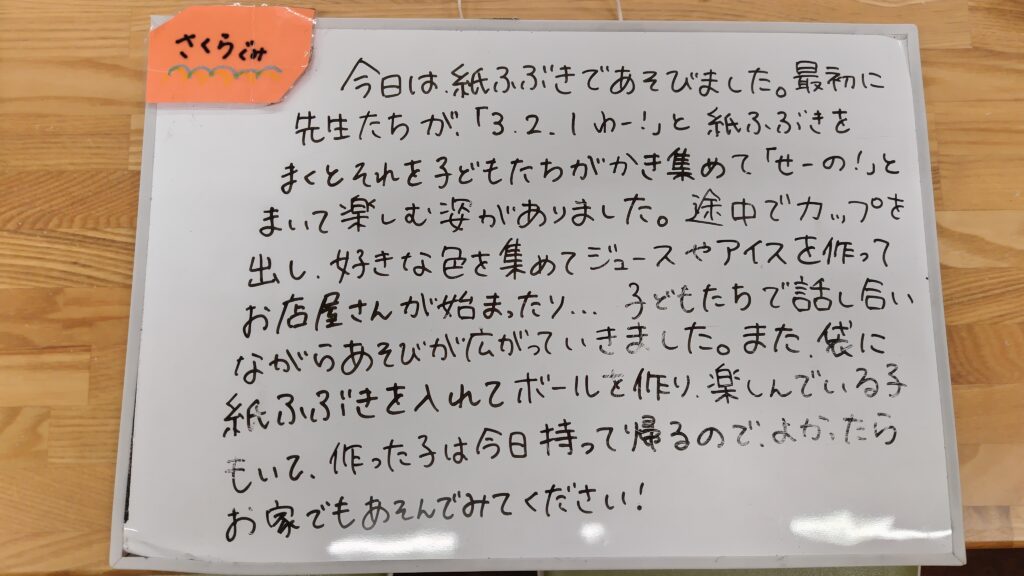 さくらぐみ
今日は、紙ふぶきであそびました。最初に
先生たちが、「3.2.1わー!」と紙ふぶきを
まくとそれを子どもたちがかき集めて「せーの!」と
まいて楽しむ姿がありました。途中でカップを
出し、好きな色を集めてジュースやアイスを作って
お店屋さんが始まったり... 子どもたちで話し合い
ながらあそびが広がっていきました。また、袋に
紙ふぶきを入れてボールを作り、楽しんでいる子
もいて、作った子は今日持って帰るので、よかったら
お家でもあそんでみてください!